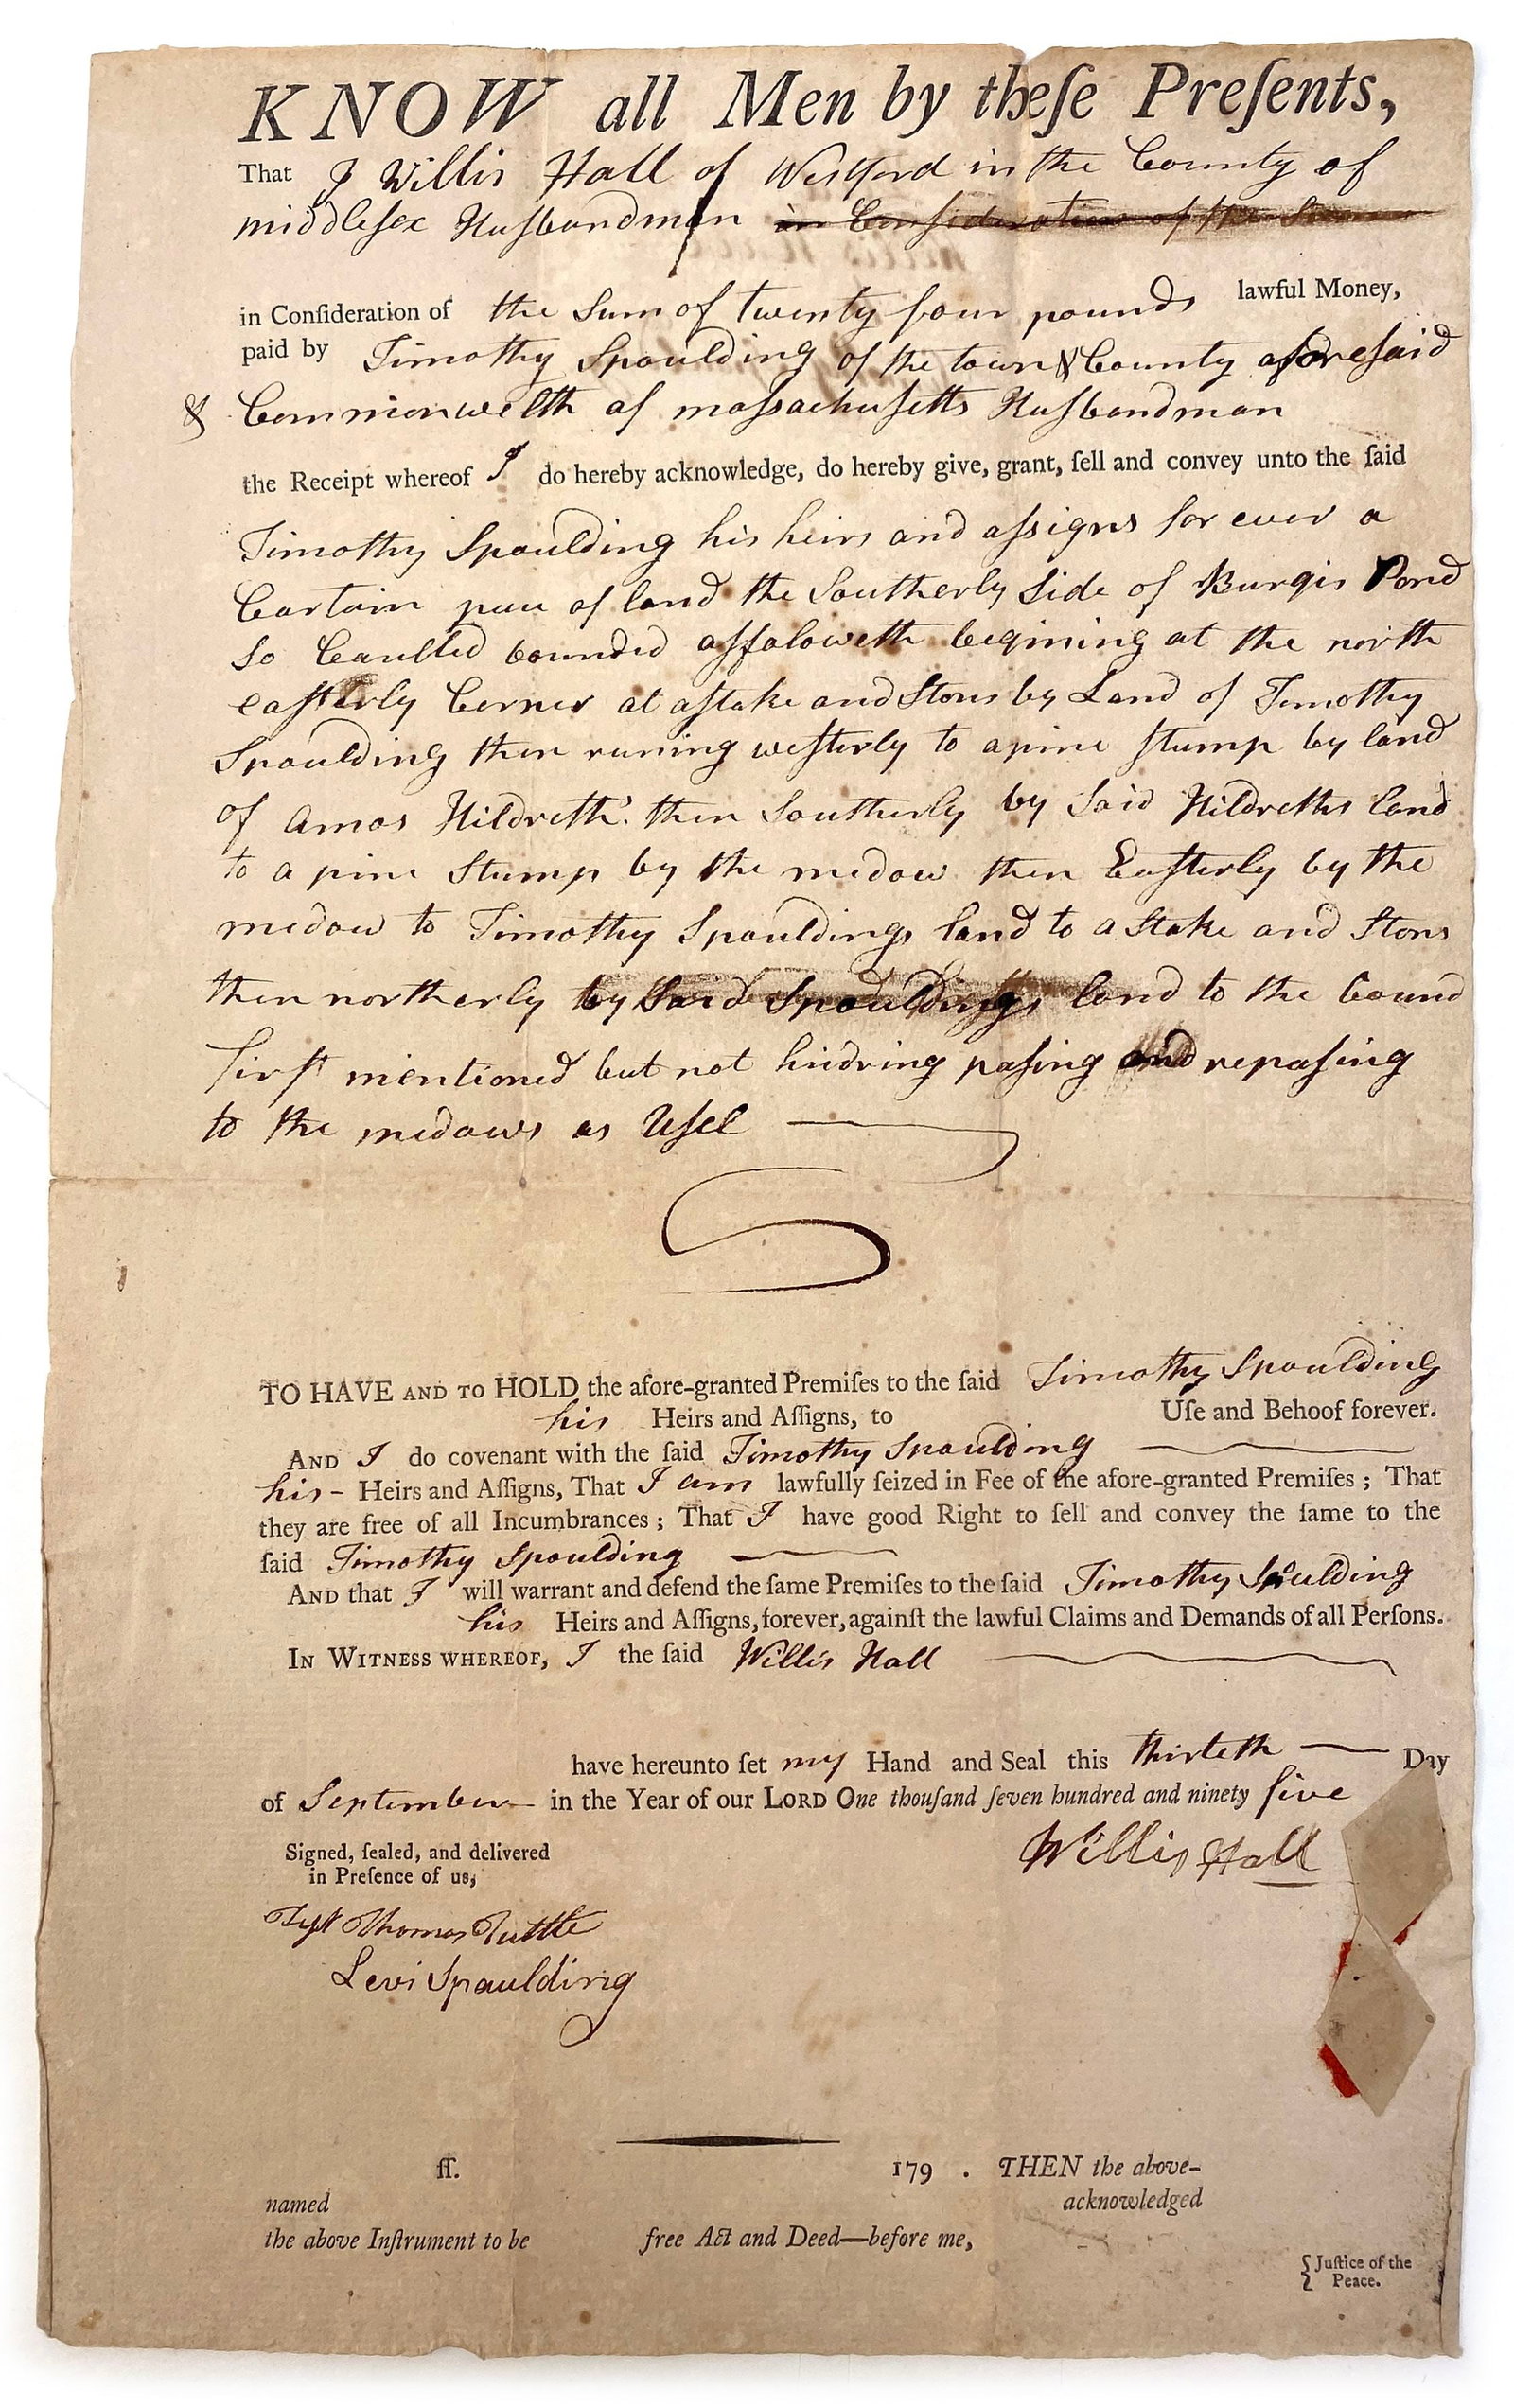 KNOW all Men by theſe Preſents,
That I Willis Hall of Westford in the County of
middleſex Huſbandman in Conſideration of the Sum
in Conſideration of the Sum of twenty four pounds lawful Money,
paid by Timothy Spaulding of the town & County aforeſaid
& Commonwelth of maſsachuſetts Huſbandman
the Receipt whereof I do hereby acknowledge, do hereby give, grant, ſell and convey unto the ſaid
Timothy Spaulding his heirs and aſsigns for ever a
Certain pece of land the Southerly Side of Burgis Pond
So Caulled bounded aſfaloweth begining at the north
eaſterly Corner at aſtake and Stons by Land of Timothy
Spaulding then runing weſterly to a pine ſtump by land
of Amos Hildreth's then Southerly by Said Hildreths land
to a pine Stump by the medow then Eaſterly by the
medow to Timothy Spauldings land to a Stake and Stons
then northerly by Said Spauldings land to the bound
firſt mentioned but not hindring paſing and repaſing
to the medows as Uſel
TO HAVE AND TO HOLD the afore-granted Premiſes to the ſaid Timothy Spaulding
his Heirs and Aſſigns, to Uſe and Behoof forever.
AND I do covenant with the ſaid Timothy Spaulding
his - Heirs and Aſſigns, That I am lawfully ſeized in Fee of the afore-granted Premiſes ; That
they are free of all Incumbrances ; That I have good Right to ſell and convey the ſame to the
ſaid Timothy Spoulding
AND that I will warrant and defend the ſame Premiſes to the ſaid Timothy Spaulding
his Heirs and Aſſigns, forever, againſt the lawful Claims and Demands of all Perſons.
IN WITNESS WHEREOF, I the ſaid Willis Hall
have hereunto ſet my Hand and Seal this thirteth Day
of September in the Year of our LORD One thouſand ſeven hundred and ninety five
Signed, ſealed, and delivered
in Preſence of us,
Willis Hall
Teſt Thomas Tuttle
Levi Spaulding
ſſ. 179 . THEN the above-
named acknowledged
the above Inſtrument to be free Act and Deed—before me,
{ Juſtice of the
Peace.